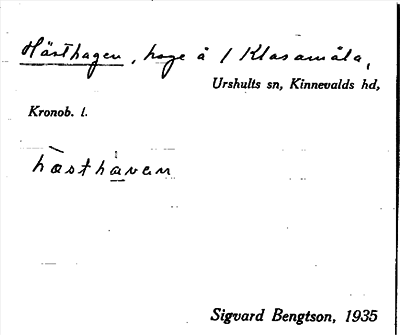 Hästhagen, hage å 1 Klasamåla,
Urshults sn, Kinnevalds hd,
Kronob. l.
hàsthàvan
Sigvard Bengtson, 1935